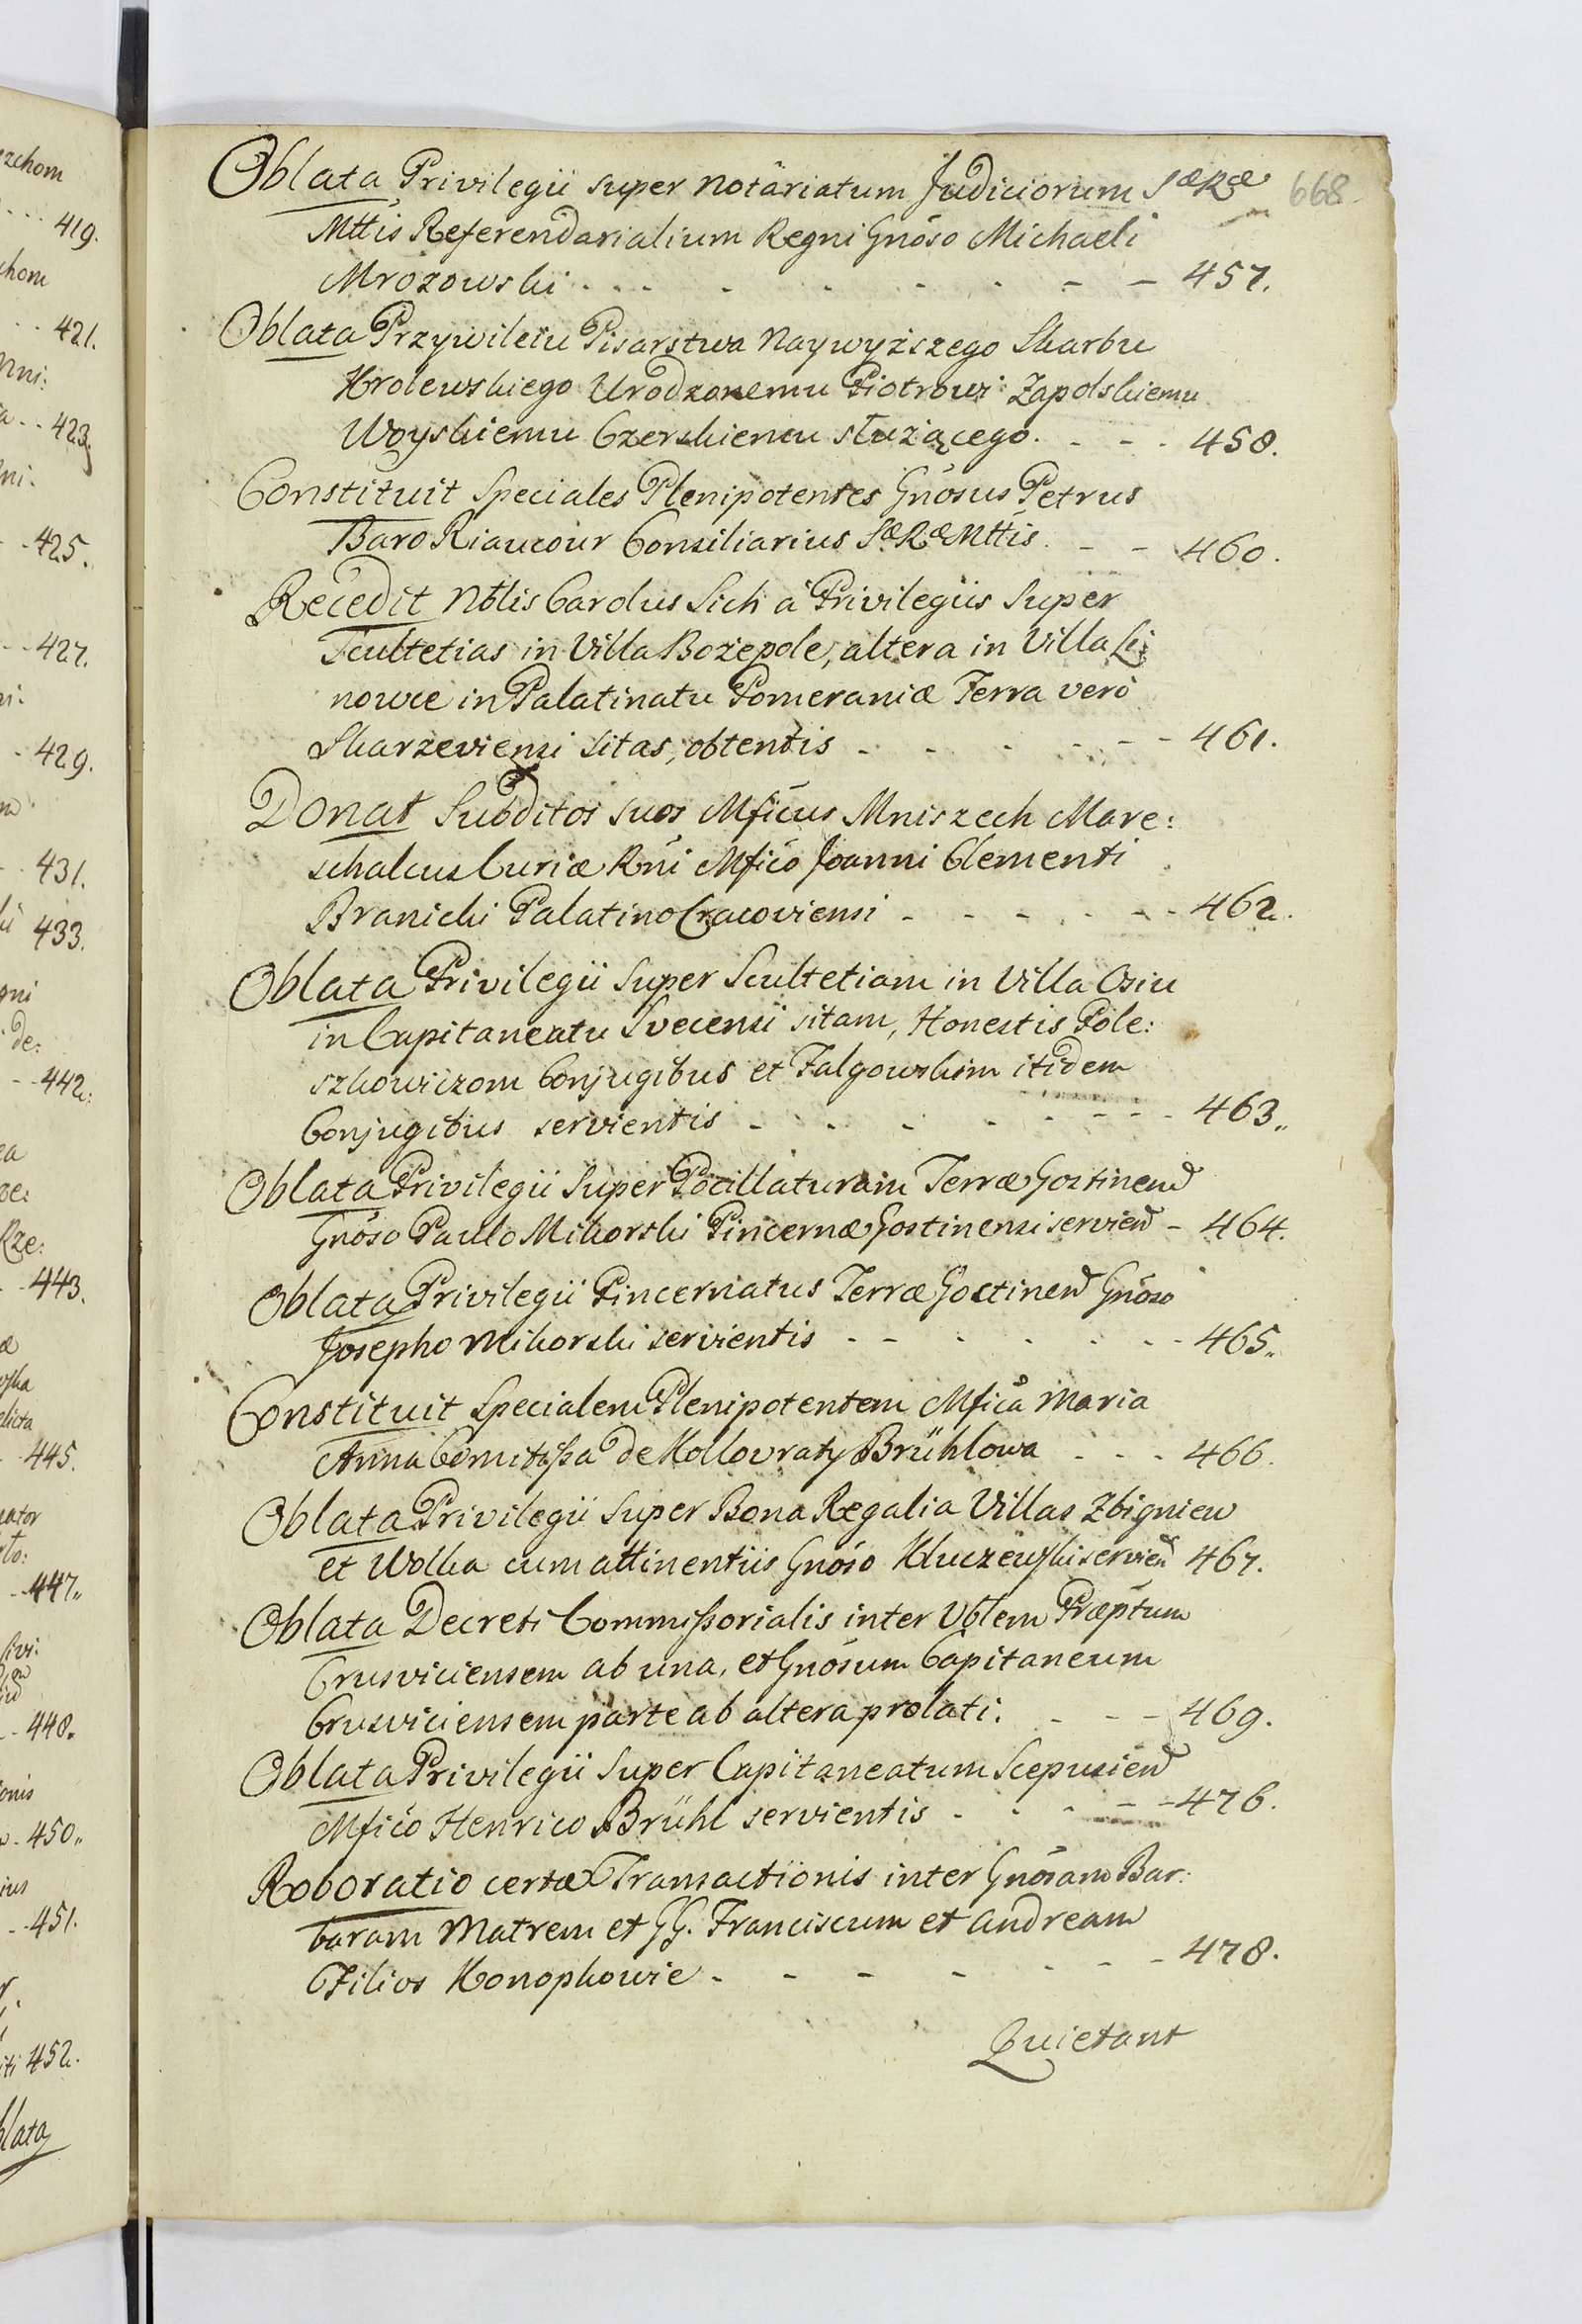 Oblata Privilegii super Notariatum Judiciorum SæRæ 668
Mttis Referendarialium Regni Gnoso Michaeli
Mrozowski - - - 457.
Oblata Przywileiu Pisarstwa Naywyższego Skarbu
Krolewskiego Urodzonemu Piotrowi Zapolskiemu
Woyskiemu Czerskiemu służącego. - - - 458.
Constituit Speciales Plenipotentes Gnosus Petrus
Baro Riaucour Consiliarius SæRæ Mttis. - - 460.
Recedit Nblis Carolus Sich à Privilegiis Super
Scultetias in Villa Bożepole, altera in Villa Li
nowce in Palatinatu Pomeraniæ Terra verò
Skarzeviensi sitas, obtentis - - - 461.
Donat Subditos suos Mficus Mniszech Mare:
schalcus Curiæ Rni Mfico Joanni Clementi
Branicki Palatino Cracoviensi - - - 462.
Oblata Privilegii Super Scultetiam in Villa Osiu
in Capitaneatu Svecensi sitam, Honestis Pole:
szkowiczom Conjugibus et Falgowskim itidem
Conjugibus servientis - - - 463.
Oblata Privilegii Super Pocillaturam Terræ Gostinen
Gnoso Paulo Mikorski Pincernæ Gostinensi servien - 464.
Oblata Privilegii Pincernatus Terræ Gostinen Gnoso
Josepho Mikorski servientis - - - 465.
Constituit Specialem Plenipotentem Mfica Maria
Anna Comitissa de Kollovraty Brühlowa - - - 466.
Oblata Privilegii Super Bona Regalia Villas Zbigniew
et Wolka cum attinentiis Gnoso Kluczewski servien 467.
Oblata Decreti Commissorialis inter Vblem Præptum
Crusviciensem ab una, et Gnosum Capitaneum
Crusviciensem parte ab altera prolati. - - - 469.
Oblata Privilegii Super Capitaneatum Scepusien
Mfico Henrico Brühl servientis - - - 476.
Roboratio certæ Transactionis inter Gnosam Bar:
baram Matrem et GG. Franciscum et Andream
Filios Konopkowie - - - 478.
Quietant